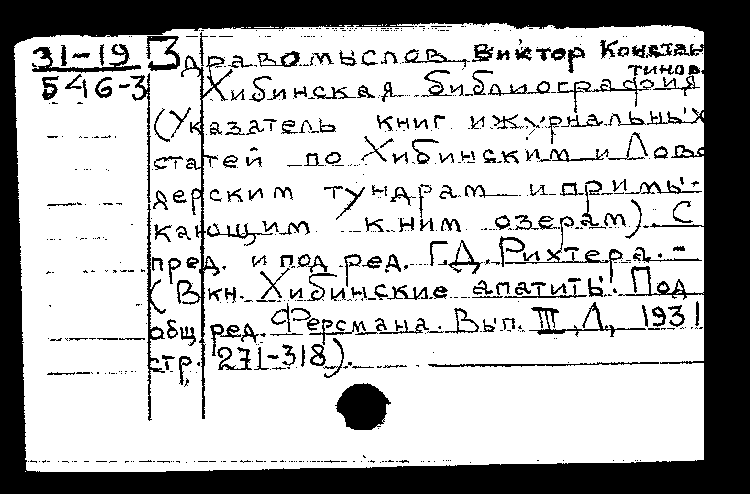 31-19 Здравомыслов, Виктор Констан
546-3 тинов.
Хибинская библиография
(Указатель книг и журнальных
статей по Хибинским и Лово
зерским тундрам и примы-
кающим к ним озерам). С
пред. и под ред. Г.Д. Рихтера. -
(В кн. Хибинские апатиты. Под
общ. ред. Ферсмана. Вып. III, Л., 1931
стр. 271-318).